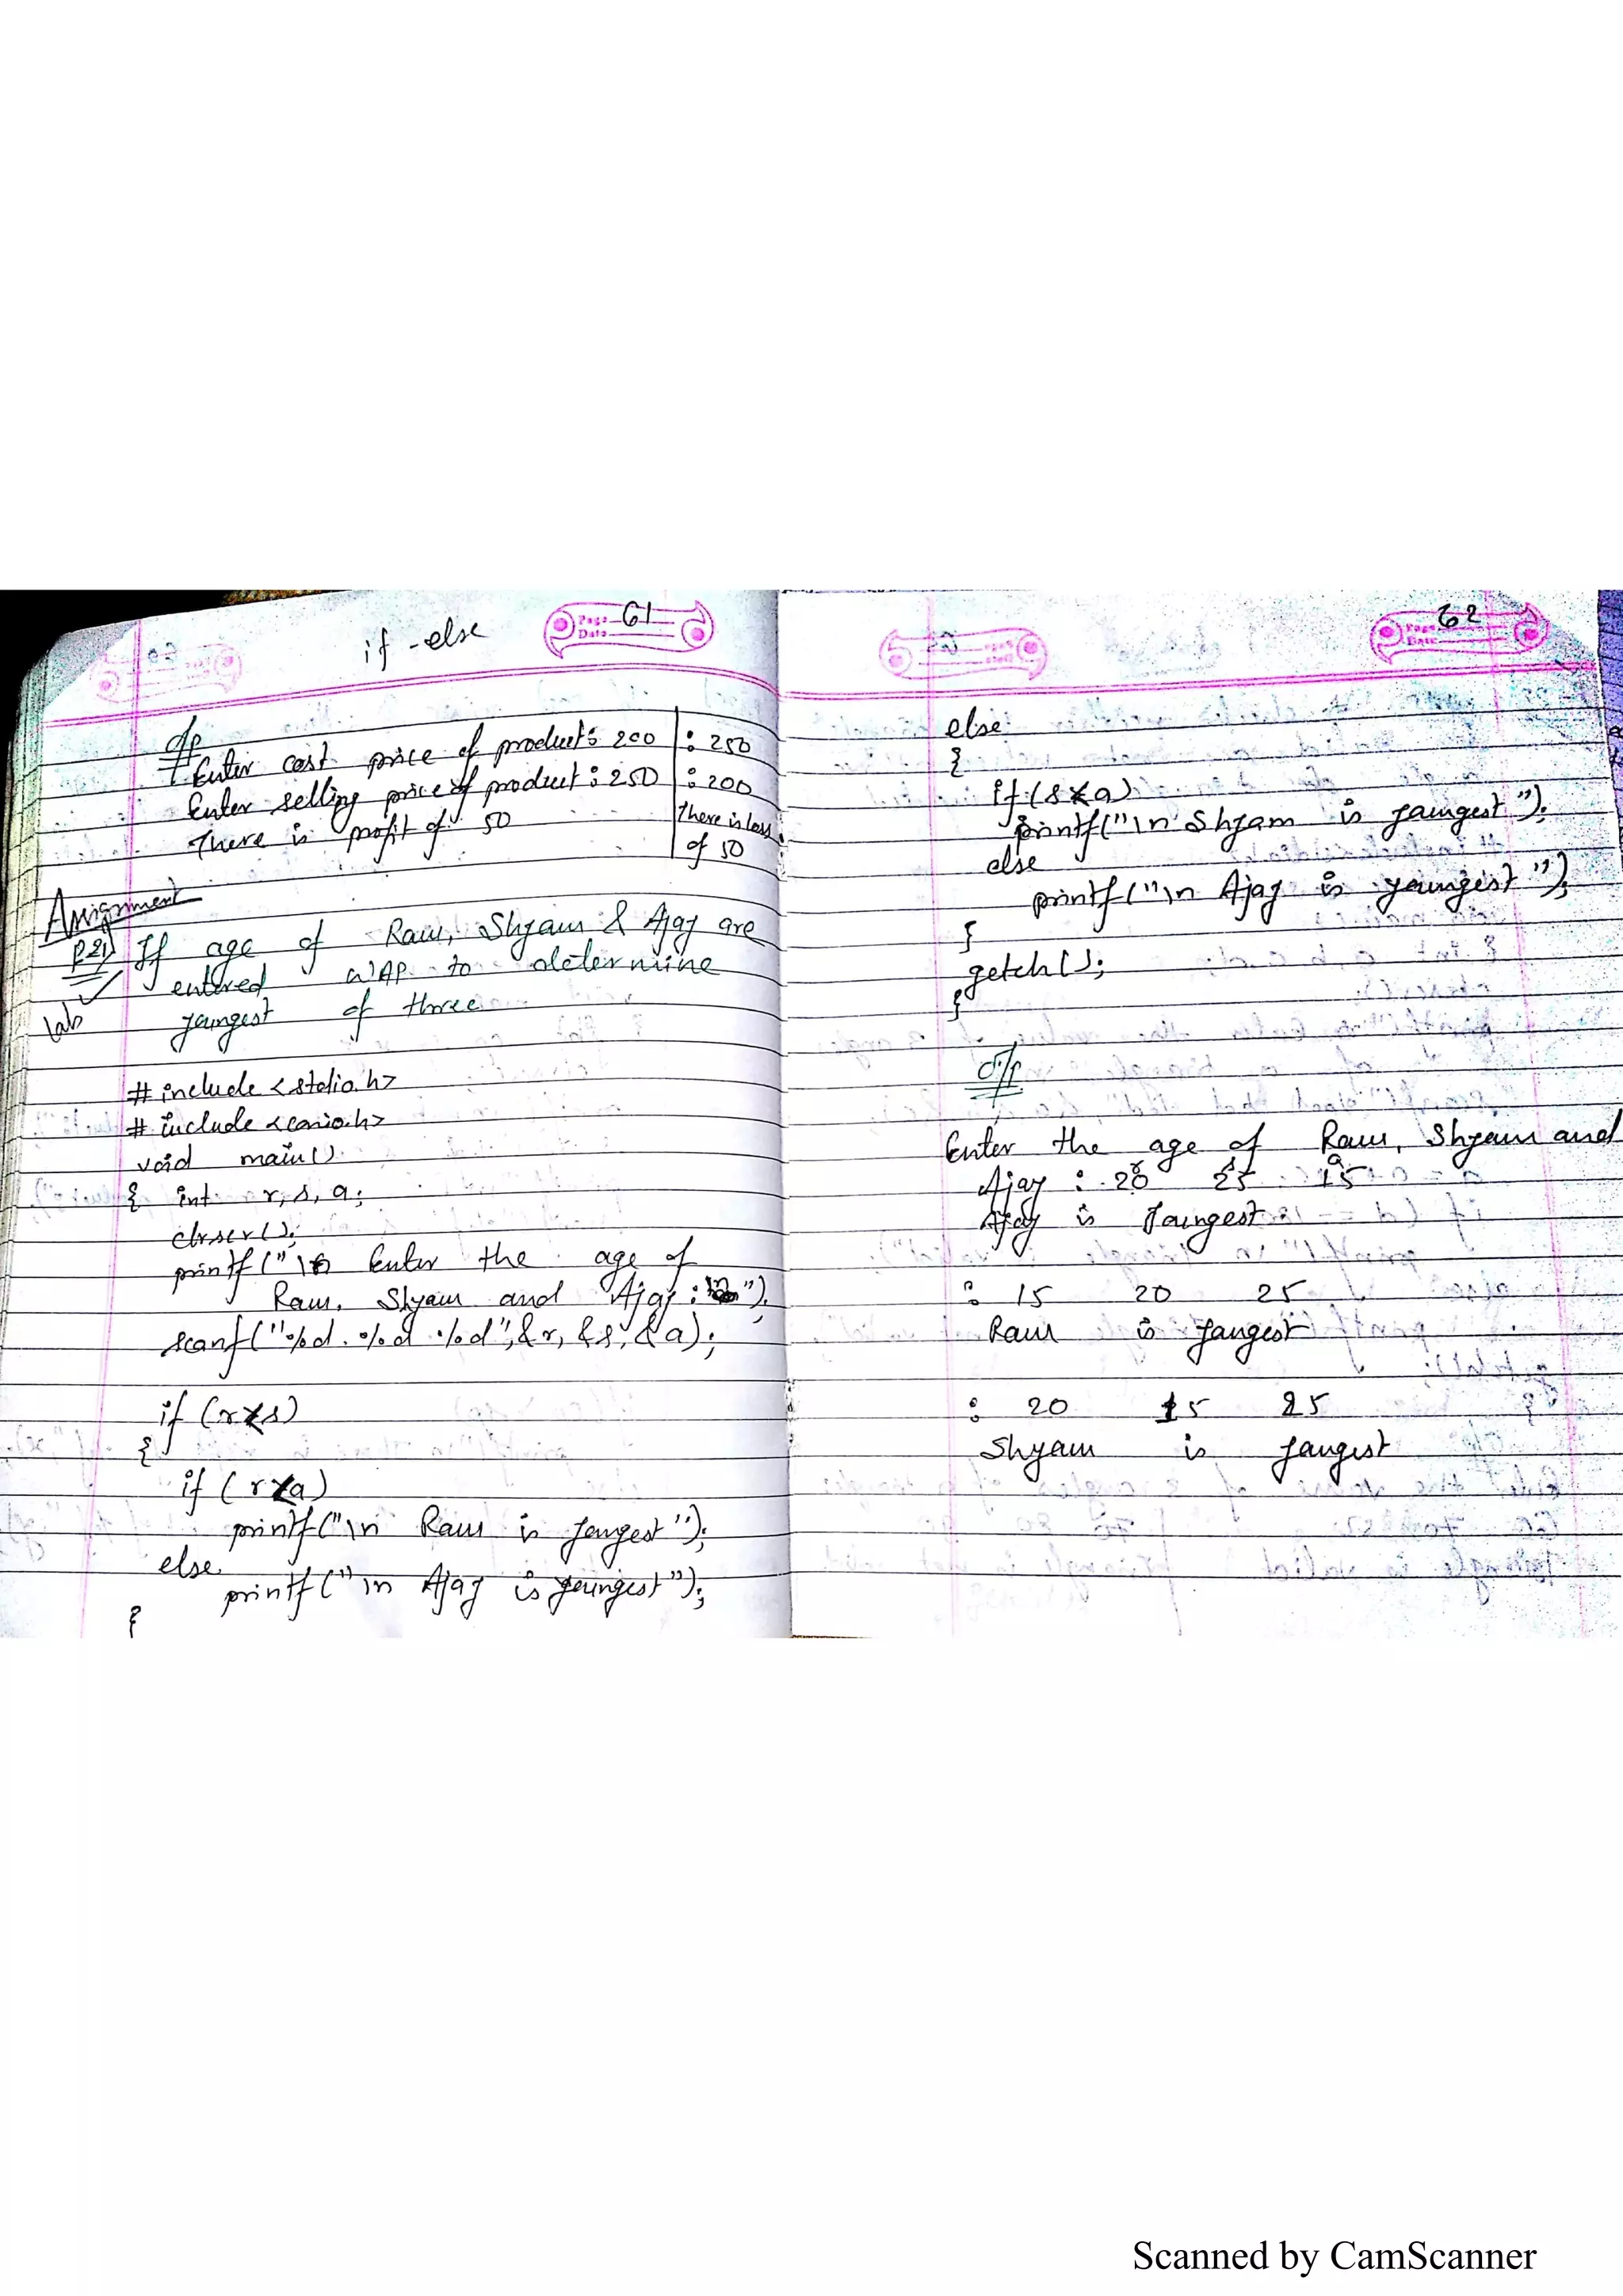 if-else
Page 61
Date
O/P
Enter cost price of product: 200 | : 250
Enter selling price of product: 250 | : 200
There is profit of 50 | There is loss
of 50
Assignment
P21) If age of Ram, Shyam & Ajay are
entered WAP to determine
lab youngest of three
#include <stdio.h>
#include <conio.h>
void main()
{ int r, s, a;
clrscr();
printf("\n Enter the age of
Ram, Shyam and Ajay: ");
scanf("%d %d %d", &r, &s, &a);
if (r<s)
{
if (r<a)
printf("\n Ram is yongest");
else
printf("\n Ajay is youngest");
}
Page 62
Date
else
{
if (s<a)
printf("\n Shyam is youngest");
else
printf("\n Ajay is youngest");
}
getch();
}
O/P
Enter the age of Ram, Shyam and
Ajay : 20 25 15
Ajay is Youngest
: 15 20 25
Ram is yangest
: 20 15 25
Shyam is yangest
Scanned by CamScanner